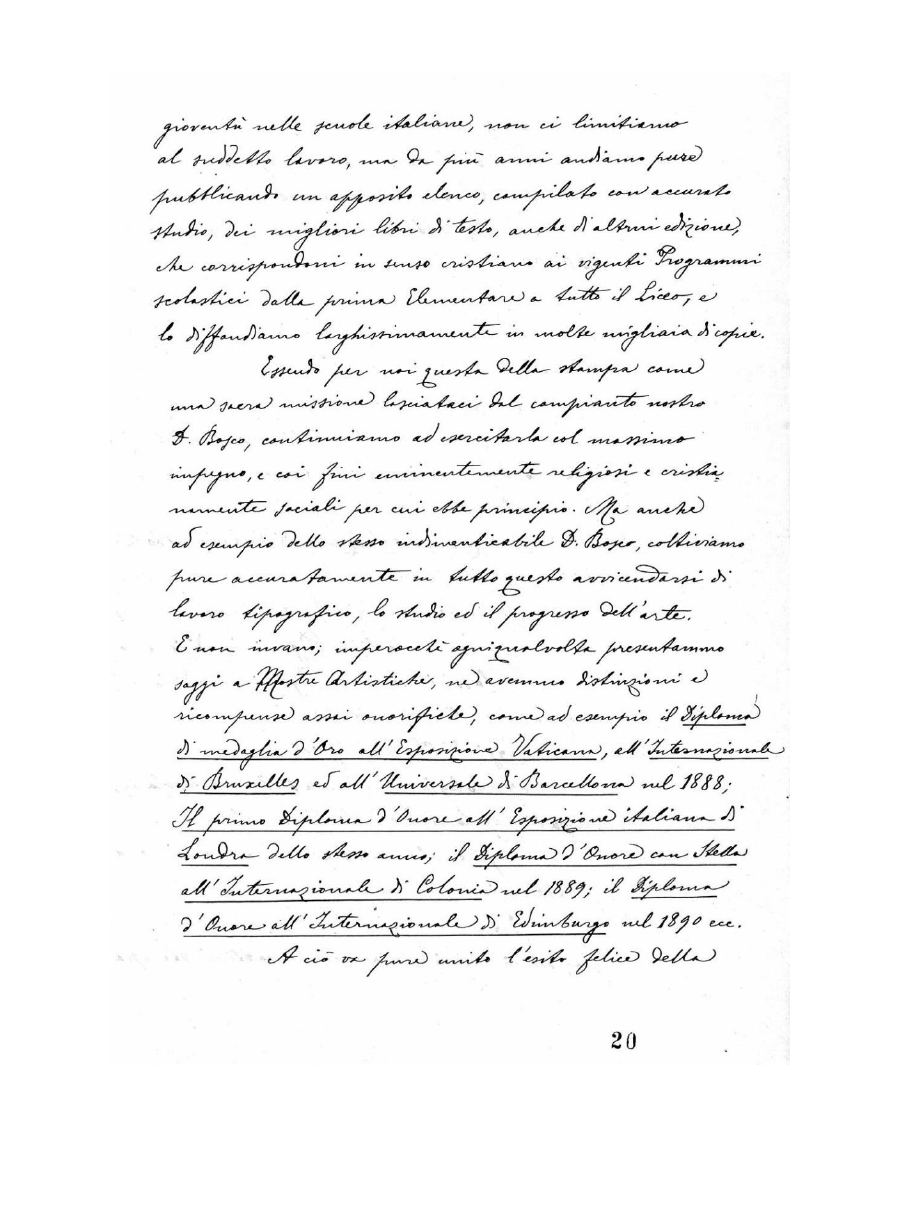 gioventù nelle scuole italiane, non ci limitiamo
al suddetto lavoro, ma da più anni andiamo pure
pubblicando un apposito elenco, compilato con accurato
studio, dei migliori libri di testo, anche di altrui edizione,
che corrispondoni in senso cristiano ai vigenti Programmi
scolastici dalla prima Elementare a tutto il Liceo, e
lo diffondiamo larghissimamente in molte migliaia di copie.
Essendo per noi questa della stampa come
una sacra missione lasciataci dal compianto nostro
D. Bosco, continuiamo ad esercitarla col massimo
impegno, e coi fini eminentemente religiosi e cristia-
namente sociali per cui ebbe principio. Ma anche
ad esempio dello stesso indimenticabile D. Bosco, coltiviamo
pure accuratamente in tutto questo avvicendarsi di
lavoro tipografico, lo studio ed il progresso dell'arte.
E non invano; imperocchè ogniqualvolta presentammo
saggi a Mostre Artistiche, ne avemmo distinzioni e
ricompense assai onorifiche, come ad esempio il Diploma
di medaglia d'Oro all'Esposizione Vaticana, all'Internazionale
di Bruxelles ed all'Universale di Barcellona nel 1888;
Il primo Diploma d'Onore all'Esposizione italiana di
Londra dello stesso anno; il Diploma d'Onore con Stella
all'Internazionale di Colonia nel 1889; il Diploma
d'Onore all'Internazionale di Edimburgo nel 1890 ecc.
A ciò va pure unito l'esito felice della
20